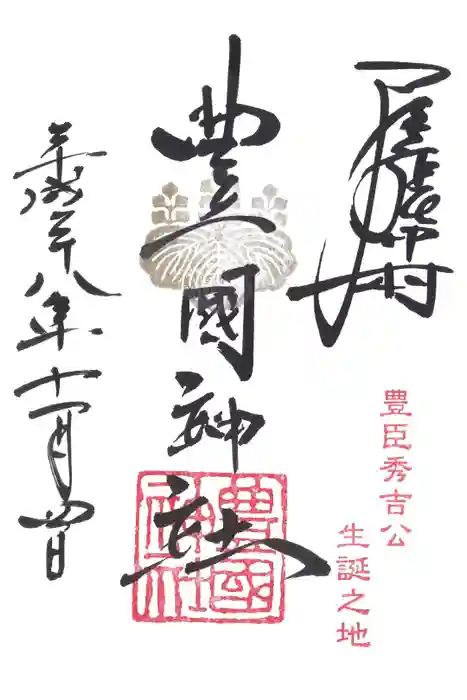 中村
豊臣秀吉公
生誕之地
豊國神社
豊國
神社
平成二十八年十一月四日